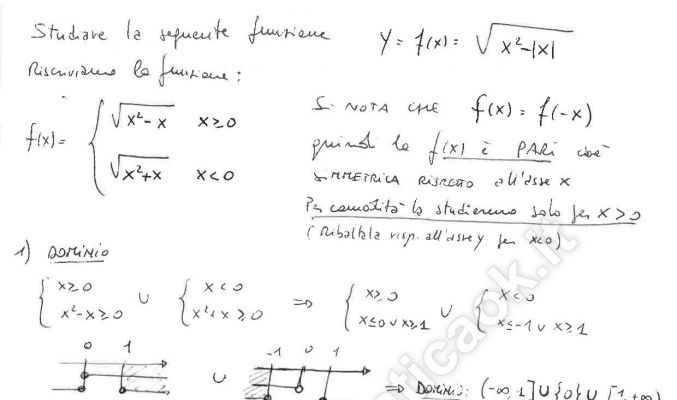 Studiare la seguente funzione y = f(x) = √x²-|x|
Riscriviamo la funzione:
f(x) = { √x²-x x≥0
√x²+x x<0
SI NOTA CHE f(x) = f(-x)
quindi la f(x) è PARI cioè
SIMMETRICA RISPETTO all'asse x
Per comodità la studieremo solo per x>0
(Ribaltala risp. all'asse y per x<0)
1) DOMINIO
{ x≥0 ∪ { x<0 ⇒ { x≥0 ∪ { x<0
x²-x≥0 x²+x≥0 x≤0 ∨ x≥1 x≤-1 ∨ x≥1
0 1 -1 0 1
∪ ⇒ DOMINIO: (-∞,1]∪{0}∪[1,+∞)
aticaok.it